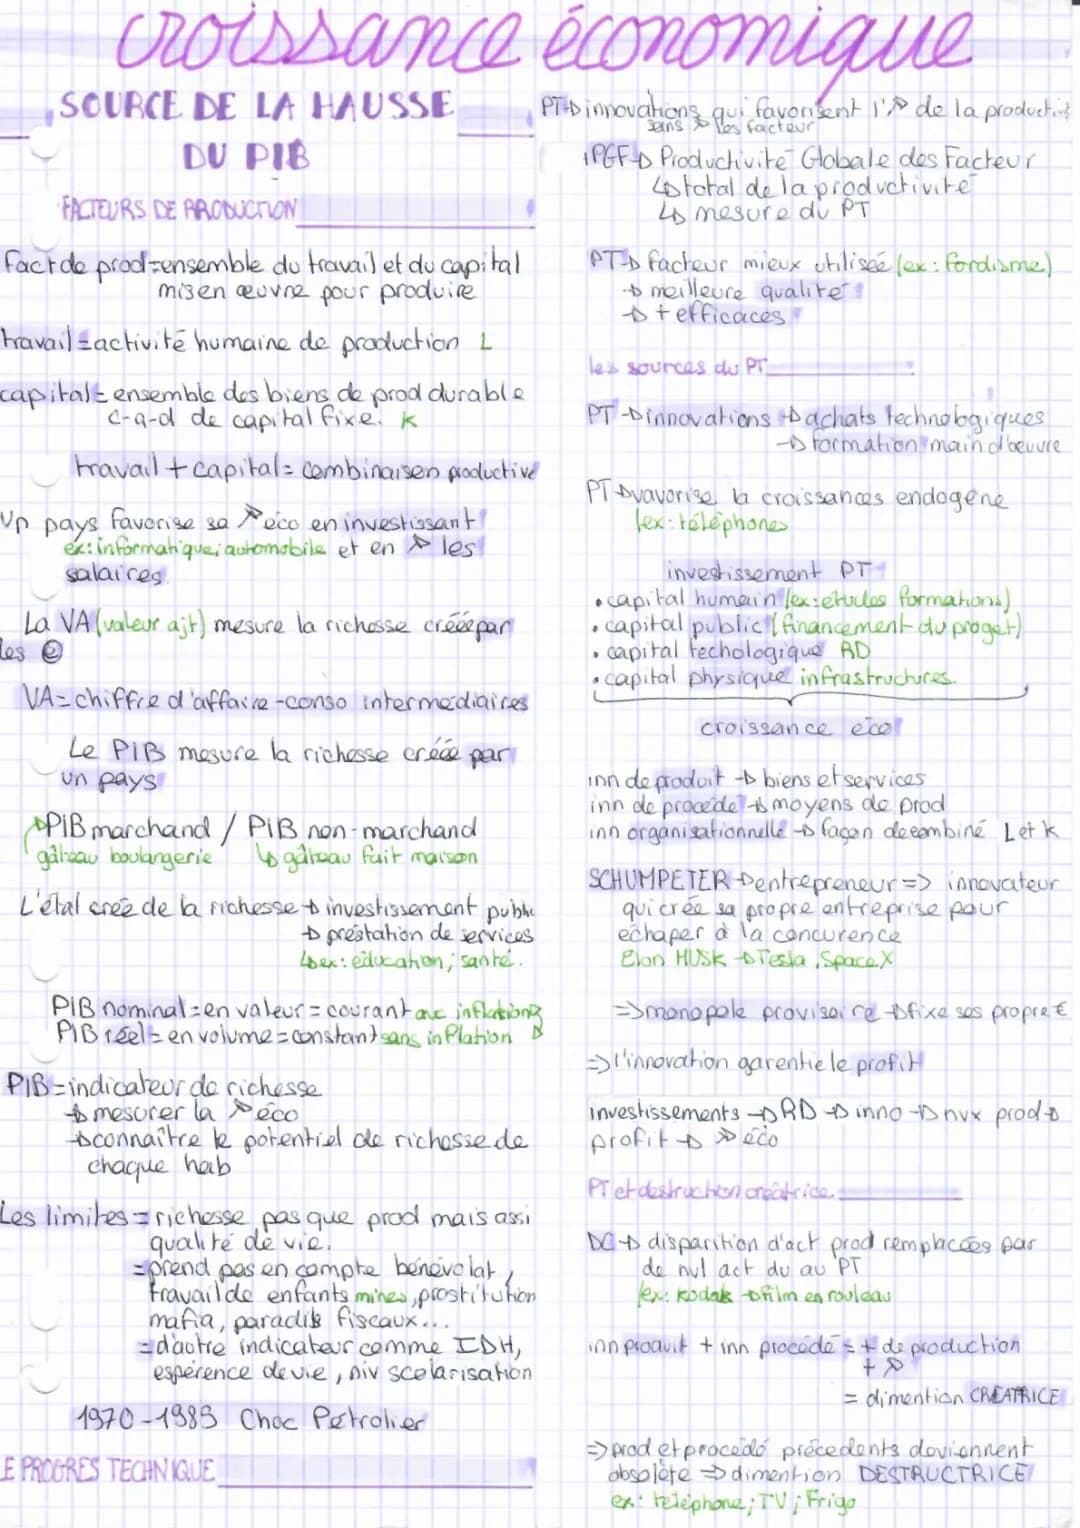 croissance économique
SOURCE DE LA HAUSSE
DU PIB
FACTEURS DE PRODUCTION
fact de prod = ensemble du travail et du capital
mis en œuvre pour produire
travail = activité humaine de production L
capital = ensemble des biens de prod durable
c-a-d de capital fixe. K
travail + capital = combinaisen productive
Un pays favorise sa ↗ éco en investissant
ex: informatique; automobile et en ↗ les
salaires
La VA (valeur ajt) mesure la richesse créée par
les e
VA = chiffre d'affaire - conso intermediaires
Le PIB mesure la richesse créée par
un pays
PIB marchand / PIB non-marchand
gâteau boulangerie ↳ gâteau fait maison
L'état créé de la richesse → investissement public
→ préstation de services
↳ ex: éducation; santé.
PIB nominal = en valeur = courant avc inflation
PIB réel = en volume = constant sans inflation
PIB = indicateur de richesse
→ mesurer la ↗ éco
→ connaître le potentiel de richesse de
chaque hab
Les limites = richesse pas que prod mais assi
qualité de vie.
= prend pas en compte bénévolat,
travail de enfants mines, prostitution
mafia, paradis fiscaux...
= d'autre indicateur comme IDH,
espérence de vie, niv scolarisation
1970-1989 Choc Pétrolier
LE PROGRES TECHNIQUE
PT → innovations qui favorisent l'↗ de la productivité
sans ↗ les facteur
PGF → Productivité Globale des Facteur
↳ total de la productivité
↳ mesure du PT
PT → facteur mieux utilisée (ex: fordisme)
→ meilleure qualité
→ + efficaces
les sources du PT
PT → innovations → achats technologiques
→ formation main d'œuvre
PT → vavorise la croissances endogène
(ex: téléphones
investissement PT
• capital humain (ex: études formations)
• capital public (financement du proget)
• capital techologique RD
• capital physique infrastructures.
croissance éco
inn de produit → biens et services
inn de procédé → moyens de prod
inn organisationnelle → façon de combiné L et K
SCHUMPETER → entrepreneur => innovateur
qui crée sa propre entreprise pour
échaper à la concurence
Elon MUSK → Tesla, Space X
=> monopole provisoire → fixe ses propre €
=> l'innovation garentie le profit
investissements → RD → inno → nvx prod →
profit → ↗ éco
PT et destruction créatrice
DC → disparition d'act prod remplacées par
de nvl act du au PT
(ex: kodak → film en rouleau
inn produit + inn procédé = + de production
+ ↗
= dimention CREATRICE
=> prod et procédé précedents deviennent
obsolète => dimention DESTRUCTRICE
ex: téléphone; TV; Frigo